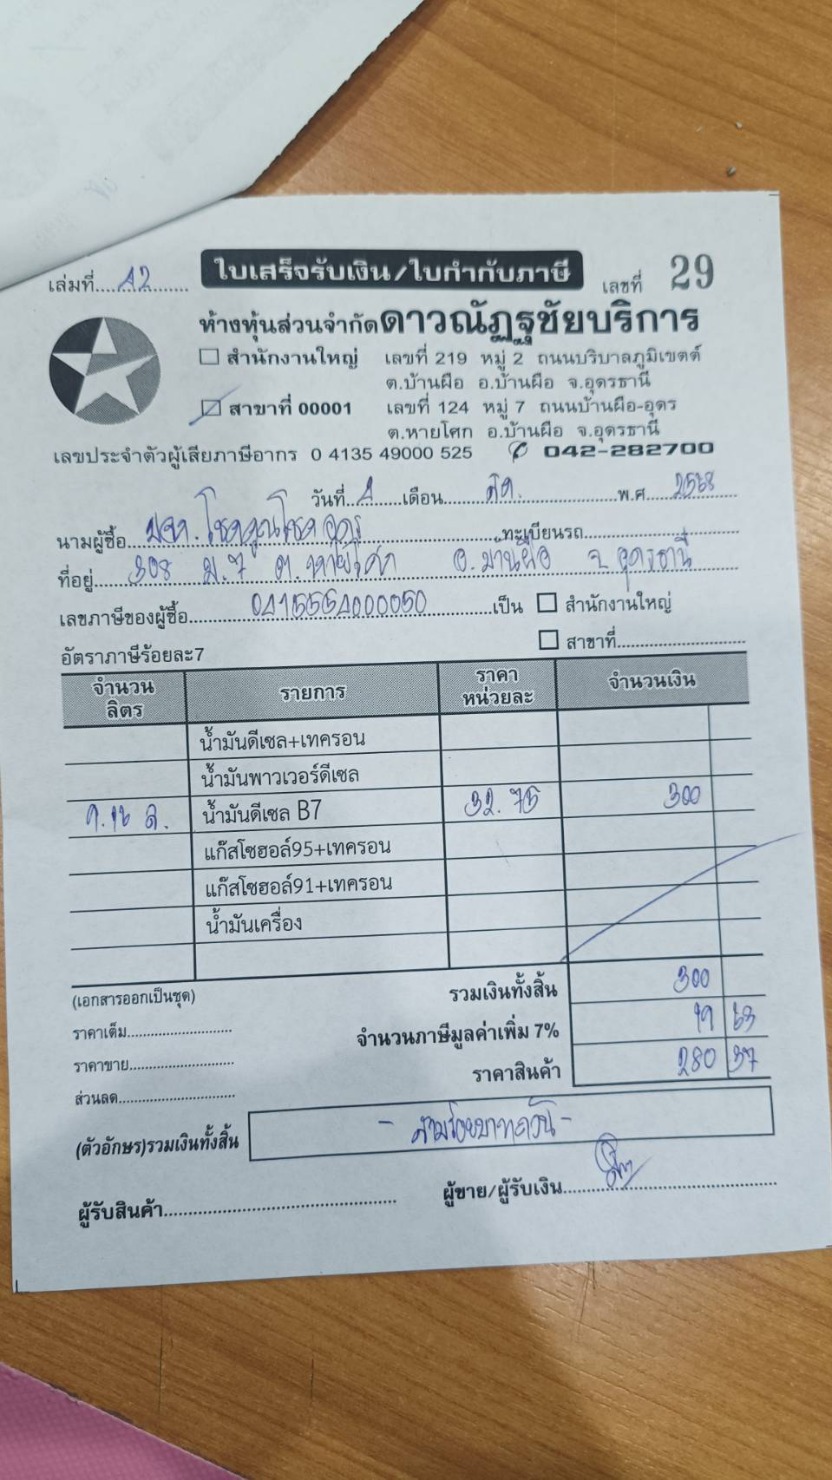 ใบเสร็จรับเงิน/ใบกำกับภาษี
เล่มที่ A2 เลขที่ 29
ห้างหุ้นส่วนจำกัดดาวณัฏฐชัยบริการ
สำนักงานใหญ่ เลขที่ 219 หมู่ 2 ถนนบริบาลภูมิเขตต์
ต.บ้านผือ อ.บ้านผือ จ.อุดรธานี
สาขาที่ 00001 เลขที่ 124 หมู่ 7 ถนนบ้านผือ-อุดร
ต.หายโศก อ.บ้านผือ จ.อุดรธานี
เลขประจำตัวผู้เสียภาษีอากร 0 4135 49000 525 042-282700
วันที่ เดือน พ.ศ. 2568
นามผู้ซื้อ ทะเบียนรถ
ที่อยู่ 308 ม.7 ต.หายโศก อ.บ้านผือ จ.อุดรธานี
เลขภาษีของผู้ซื้อ เป็น สำนักงานใหญ่
สาขาที่
อัตราภาษีร้อยละ7
จำนวนลิตร รายการ ราคาหน่วยละ จำนวนเงิน
น้ำมันดีเซล+เทครอน
น้ำมันพาวเวอร์ดีเซล
9.16 ล. น้ำมันดีเซล B7 32.75 300
แก๊สโซฮอล์95+เทครอน
แก๊สโซฮอล์91+เทครอน
น้ำมันเครื่อง
(เอกสารออกเป็นชุด) รวมเงินทั้งสิ้น 300
ราคาเต็ม จำนวนภาษีมูลค่าเพิ่ม 7% 19 63
ราคาขาย ราคาสินค้า 280 37
ส่วนลด
(ตัวอักษร)รวมเงินทั้งสิ้น - สามร้อยบาทถ้วน -
ผู้รับสินค้า ผู้ขาย/ผู้รับเงิน